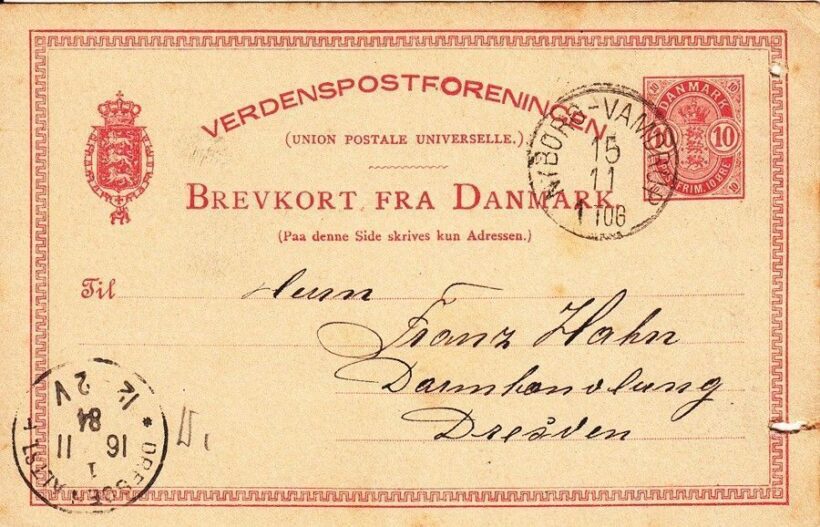 VERDENSPOSTFORENINGEN
(UNION POSTALE UNIVERSELLE.)
BREVKORT FRA DANMARK
(Paa denne Side skrives kun Adressen.)
DANMARK
10
10
10
10
10
FRIM. 10 ØRE
NYBORG-VAMDRUP
15
11
1 TOG
Til
Herrn
Franz Hahn
Darmhandlung
Dresden
DRESDEN ALTST.
1
16 11
84
12-
2 V